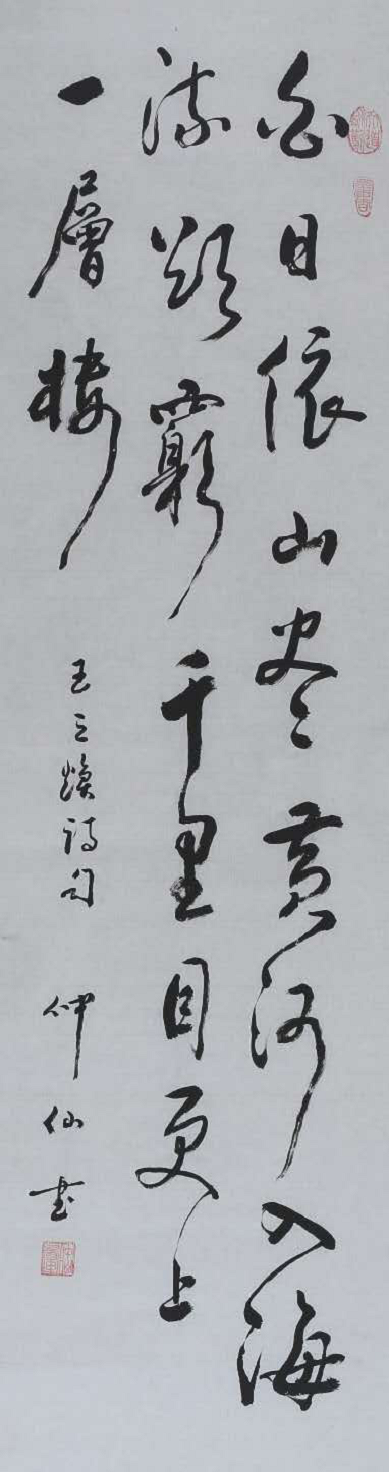 白日依山尽黄河入海
流欲窮千里目更上
一層樓
王之煥詩句 仲仙書